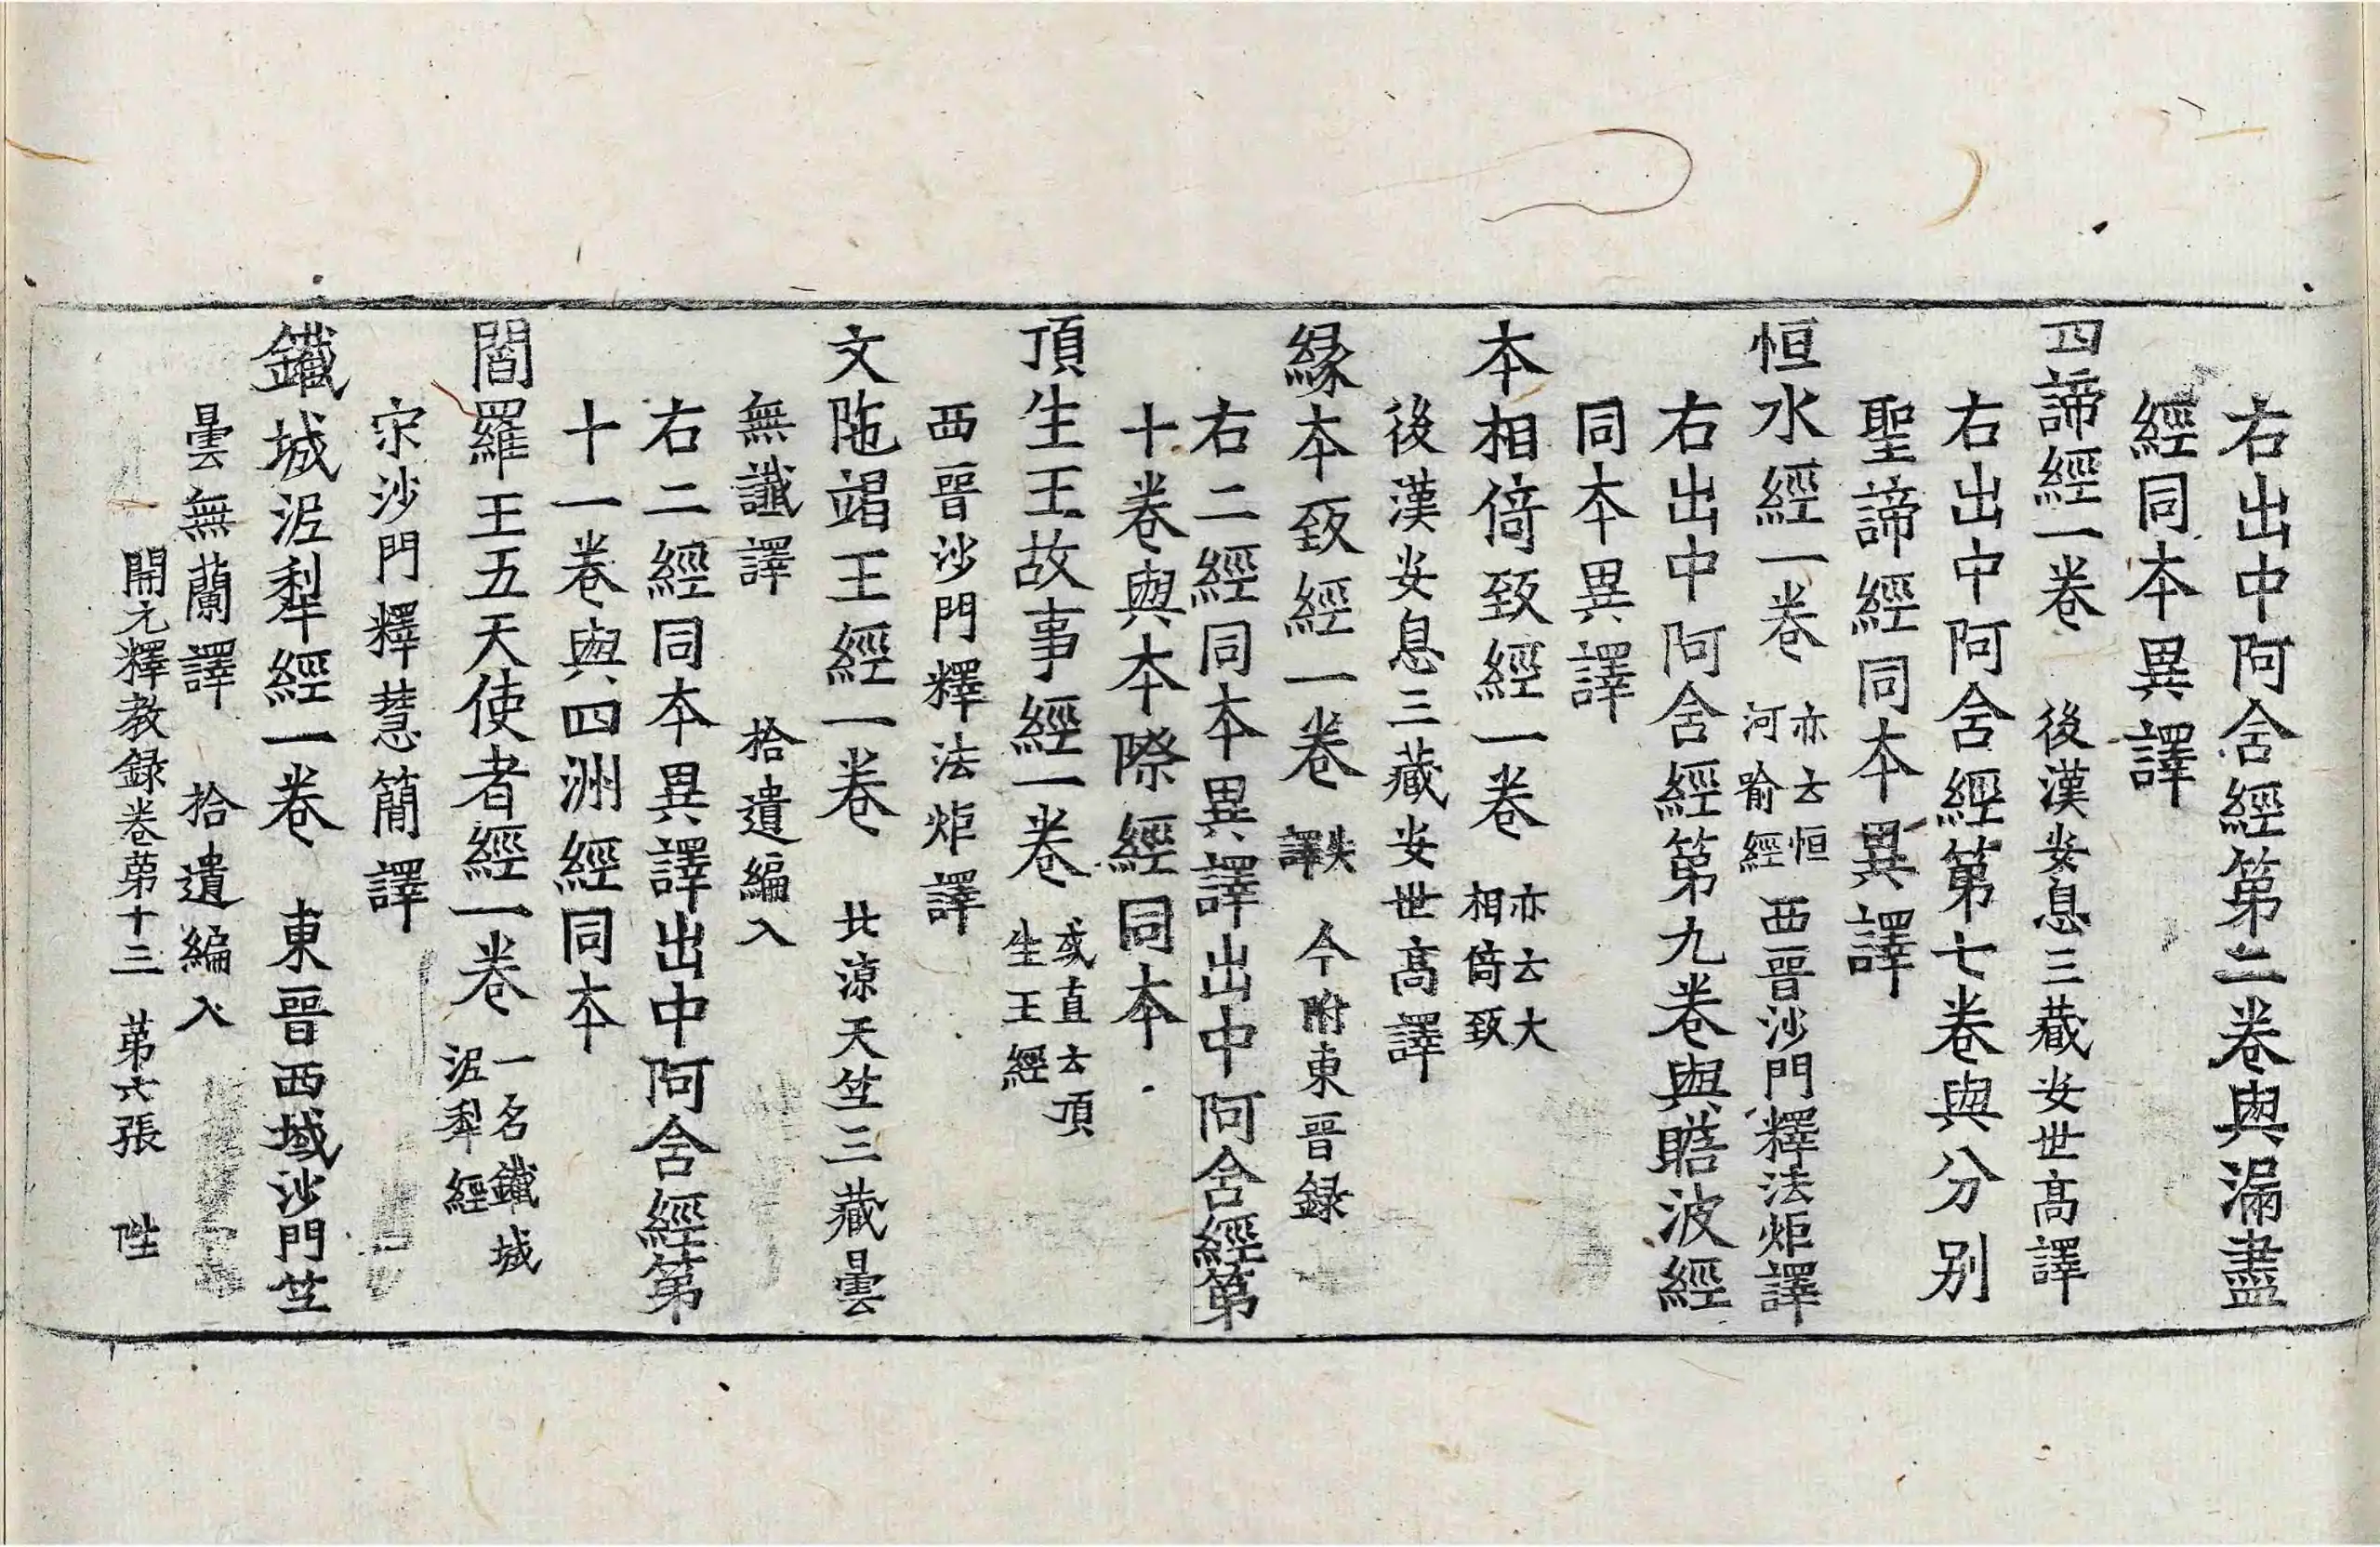 右出中阿含經第二卷與漏盡
經同本異譯
四諦經一卷 後漢安息三藏安世高譯
右出中阿含經第七卷與分別
聖諦經同本異譯
恒水經一卷 亦云恒河喻經 西晉沙門釋法炬譯
右出中阿含經第九卷與瞻波經
同本異譯
本相倚致經一卷 亦云大相倚致
後漢安息三藏安世高譯
緣本致經一卷 失譯 今附東晉録
右二經同本異譯出中阿含經第
十卷與本際經同本
頂生王故事經一卷 或直云頂生王經
西晉沙門釋法炬譯
文陁竭王經一卷 北涼天竺三藏曇
無讖譯 拾遺編入
右二經同本異譯出中阿含經第
十一卷與四洲經同本
閻羅王五天使者經一卷 一名鐵城泥犁經
宋沙門釋慧簡譯
鐵城泥犁經一卷 東晉西域沙門竺
曇無蘭譯 拾遺編入
開元釋教録卷第十三 第六張 陞